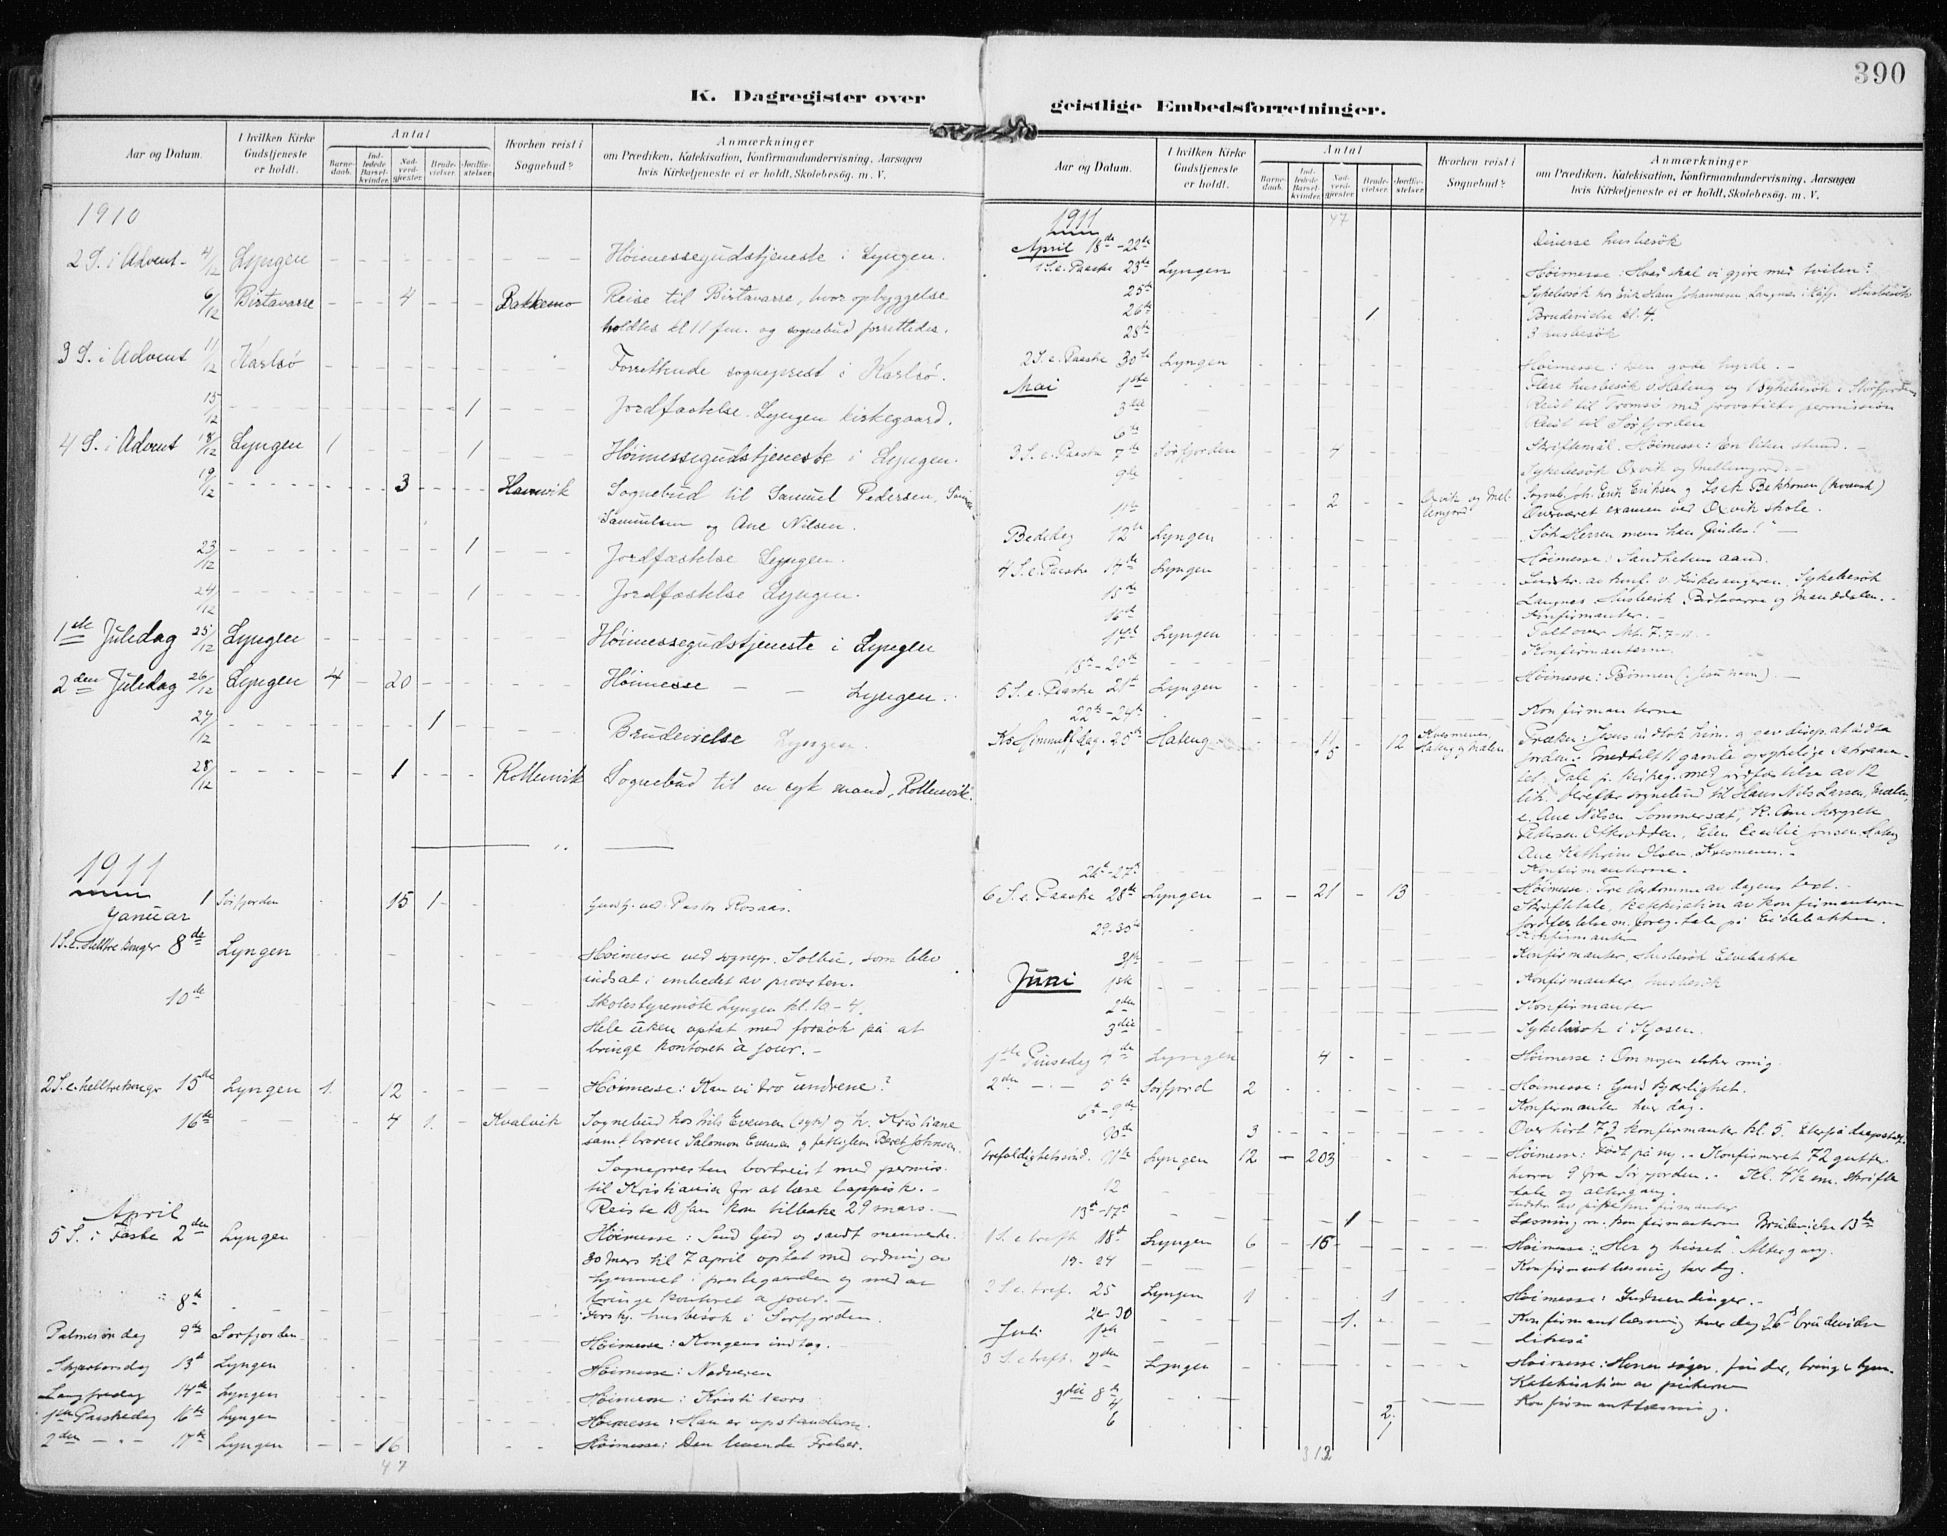 390
K. Dagregister over geistlige Embedsforretninger.
Aar og Datum.
I hvilken Kirke Gudstjeneste er holdt.
Antal
Barnedaab.
Indledede Barselkvinder.
Nadverdgjester.
Brudevielser.
Jordfæstelser.
Hvorhen reist i Sognebud?
Anmærkninger
om Prædiken, Katekisation, Konfirmandundervisning, Aarsagen
hvis Kirketjeneste ei er holdt, Skolebesøg m. V.
1910
2 S. i Advent 4/12 Lyngen Høimessegudstjeneste i Lyngen.
6/12 Birtavarre 4 Bakkemo Reise til Birtavarre, hvor opbyggelse
holdtes kl 11 fm. og sognebud forrettedes.
3 S. i Advent 11/12 Karlsø Forrettende sogneprest i Karlsø.
15/12 1 Jordfæstelse Lyngen kirkegaard.
4 S. i Advent 18/12 Lyngen 1 1 Høimessegudstjeneste i Lyngen.
19/12 3 Havnvik Sognebud til Samuel Pedersen,
Samuelsen og Ane Nilsen.
23/12 1 Jordfæstelse Lyngen.
24/12 1 Jordfæstelse Lyngen.
1ste Juledag 25/12 Lyngen Høimessegudstjeneste i Lyngen
2den Juledag 26/12 Lyngen 4 20 Høimesse - - Lyngen.
27/12 1 Brudevielse Lyngen.
28/12 1 Rottenvik Sognebud til en syk mand, Rottenvik.
1911
Januar 1 Sørfjorden 15 1 Gudstj. ved Pastor Rosaas.
1 S. e. Helltrekonger 8de Lyngen Høimesse ved sognepr. Solbu, som blev
indsat i embedet av provsten.
10de Skolestyremøte Lyngen kl. 10-4.
Hele uken optat med forsøk på at
bringe kontoret à jour.
2 S. e. helltrekonger 15de Lyngen 1 12 Høimesse: Kan vi tro undrene?
16de 4 1 Kvalvik Sognebud hos Nils Evensen (syk) og h. Kristiane
samt broren Salomon Evensen og fattiglem Beret Johnsen
Sognepresten bortreist med permis.
til Kristiania for at læse lappisk.
Reiste 18 jan kom tilbake 29 mars.
April
5 S. i Faste 2den Lyngen Høimesse: Sand Gud og sandt menneske.
30 mars til 7 april optat med ordning av
hjemmet i prestegaarden og med at
bringe kontoret a jour.
8de Forskj. husbesøk i Sørfjorden.
Palmesøndag 9de Sørfjorden Høimesse: Kongens indtog.
Skjærtorsdag 13de Lyngen Høimesse: Nadveren
Langfredag 14de Lyngen Høimesse: Kristi kors
1ste Paaskedag 16de Lyngen Høimesse: Han er opstanden.
2den - - 17de Lyngen 16 Høimesse: Den levende Frelser.
47
Aar og Datum.
I hvilken Kirke Gudstjeneste er holdt.
Antal
Barnedaab.
Indledede Barselkvinder.
Nadverdgjester.
Brudevielser.
Jordfæstelser.
Hvorhen reist i Sognebud?
Anmærkninger
om Prædiken, Katekisation, Konfirmandundervisning, Aarsagen
hvis Kirketjeneste ei er holdt, Skolebesøg m. V.
1911 47
April 18de-22de Diverse husbesøk
1 S. e. Paaske 23de Lyngen Høimesse: Hvad skal vi gjøre med tvilen?
25de Sykebesøk hos Erik Hans Johannesen Langnes i Kåfj. Husbesøk
26de 1 Brudevielse kl. 4.
28de 3 husbesøk
2 S. e. Paaske 30te Lyngen Høimesse: Den gode hyrde.
Mai 1ste Flere husbesøk v. Hateng og 1 sykebesøk i Storfjorden
3die Reist til Tromsø med provstiets permission
6te Reist til Sørfjorden
3 S. e. Paaske 7de Sørfjorden 4 Skriftemål. Høimesse: En liten stund.
9de Sykebesøk Oxvik og Mellemjord.
11te 2 Oxvik og Mellemjord Sogneb. Joh. Erik Eriksen og Isak Bekkonen (kvænsk)
Overværet examen ved Oxvik skole.
Bededag 12te Lyngen "Søk Herren mens han findes!"
4 S. e. Paaske 14de Lyngen Høimesse: Sandhetens aand.
15de Indskr. av konf. v. kirkesangeren. Sykebesøk
Langnes Husbesøk Birtavarre og Manddalen.
16de Konfirmanter.
17de Lyngen Talt over Mt. 7. 7-11.
18de-20de Konfirmanterne.
5 S. e. Paaske 21de Lyngen Høimesse: Bønnen (i Jesu navn).
22de-24de Konfirmanterne
Kr. Himmelf. dag 25de Hateng 11 5 12 Kvesmenes, Hateng og Mælen Præken: Jesus
jorden. Meddelt 11 gamle og sykelige
Tale p. kirkeg. med jordfæstelse av 12
lik. Derefter sognebud til Hans Nils Larsen, Mælen,
e. Ane Nilsen Sommersæt, K. Ane Margrete
Pedersen, Elen Cecilie Jonsen Hateng
Ane Kathrine Olsen, Kvesmenes.
26de-27de Konfirmanterne.
6 S. e. Paaske 28de Lyngen 21 13 Høimesse: Tre lærdomme av dagens text.
Skriftetale, katekisation av konfirmanterne
Jordfæstelse m. foreg. tale på Eidebakken.
29-30te Konfirmanter
31te Konfirmanter, Husbesøk Elvebakke
Juni 1ste Konfirmanter husbesøk
2den Konfirmanter
3die Sykebesøk i Kjosen.
1ste Pinsedag 4de Lyngen 4 Høimesse: Om nogen elsker mig.
2den - - 5te Sørfjord 2 Høimesse: Guds Kjærlighet.
6te-9de Konfirmanter hver dag.
10de 3 Overhørt 73 konfirmanter kl. 5.
Trefoldighetssøndag 11te Lyngen 12 203 Høimesse: Født på ny. Konfirmeret 72 gutter
hvorav 9 fra Sørfjorden. Kl. 4½ em. skrifte
tale og altergang.
12
13de-17de 1 Læsning m. konfirmanterne Brudevielse 13de
1 S. e. tref. 18de Lyngen 6 15 Høimesse: "Her og hisset". Altergang.
19-24 Konfirmantlæsning hver dag.
2 S. e. tref. 25 Lyngen 1 1 Høimesse: Indvendinger.
26-30 1 Konfirmantlæsning hver dag 26de brudevielse
Juli 1ste likeså
3 S. e. tref. 2den Lyngen Høimesse: Herren søger, finder, bringer hjem.
Katekisation av pikerne
3die 8de 2 Konfirmantlæsning.
4
6 1
312